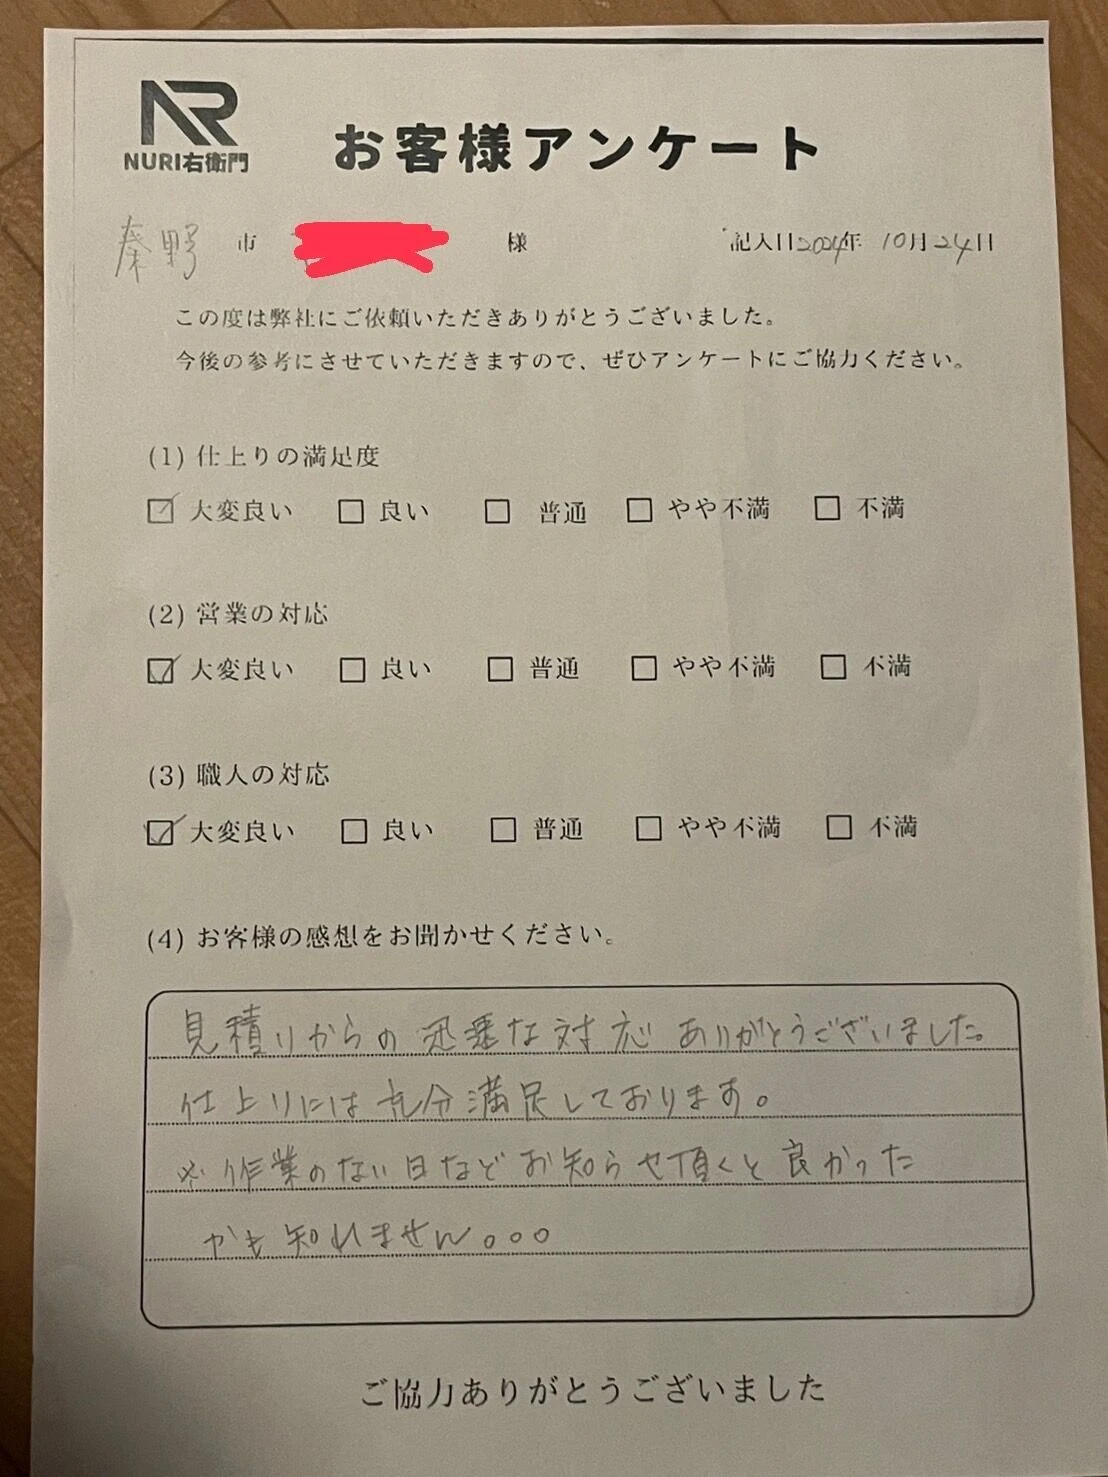 NR
NURI右衛門
お客様アンケート
秦野 市 様 記入日2024年 10月24日
この度は弊社にご依頼いただきありがとうございました。
今後の参考にさせていただきますので、ぜひアンケートにご協力ください。
(1) 仕上りの満足度
☑ 大変良い □ 良い □ 普通 □ やや不満 □ 不満
(2) 営業の対応
☑ 大変良い □ 良い □ 普通 □ やや不満 □ 不満
(3) 職人の対応
☑ 大変良い □ 良い □ 普通 □ やや不満 □ 不満
(4) お客様の感想をお聞かせください。
見積りからの迅速な対応 ありがとうございました。
仕上りには充分満足しております。
※作業のない日などお知らせ頂くと良かった
かも知れません。。。
ご協力ありがとうございました